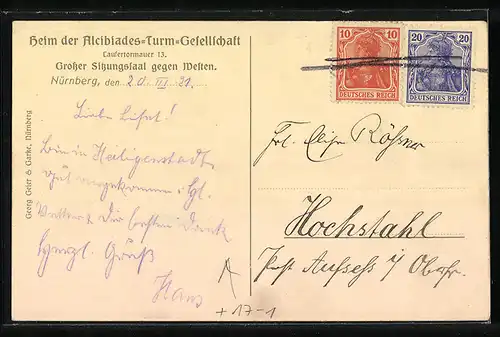 Heim der Alcibiades=Turm=Gesellschaft
Laufertormauer 13.
Großer Sitzungssaal gegen Westen.
Nürnberg, den 20. III. 21.
10 10
DEUTSCHES REICH
20 20
DEUTSCHES REICH
Liebe
bin in Heiligenstadt
gut angekommen.
Dir besten Dank
Herzl. Gruß
Hans
Frl. Rößner
Hochstahl
Post Aufseß
+17-1
Georg Geier & Garke, Nürnberg